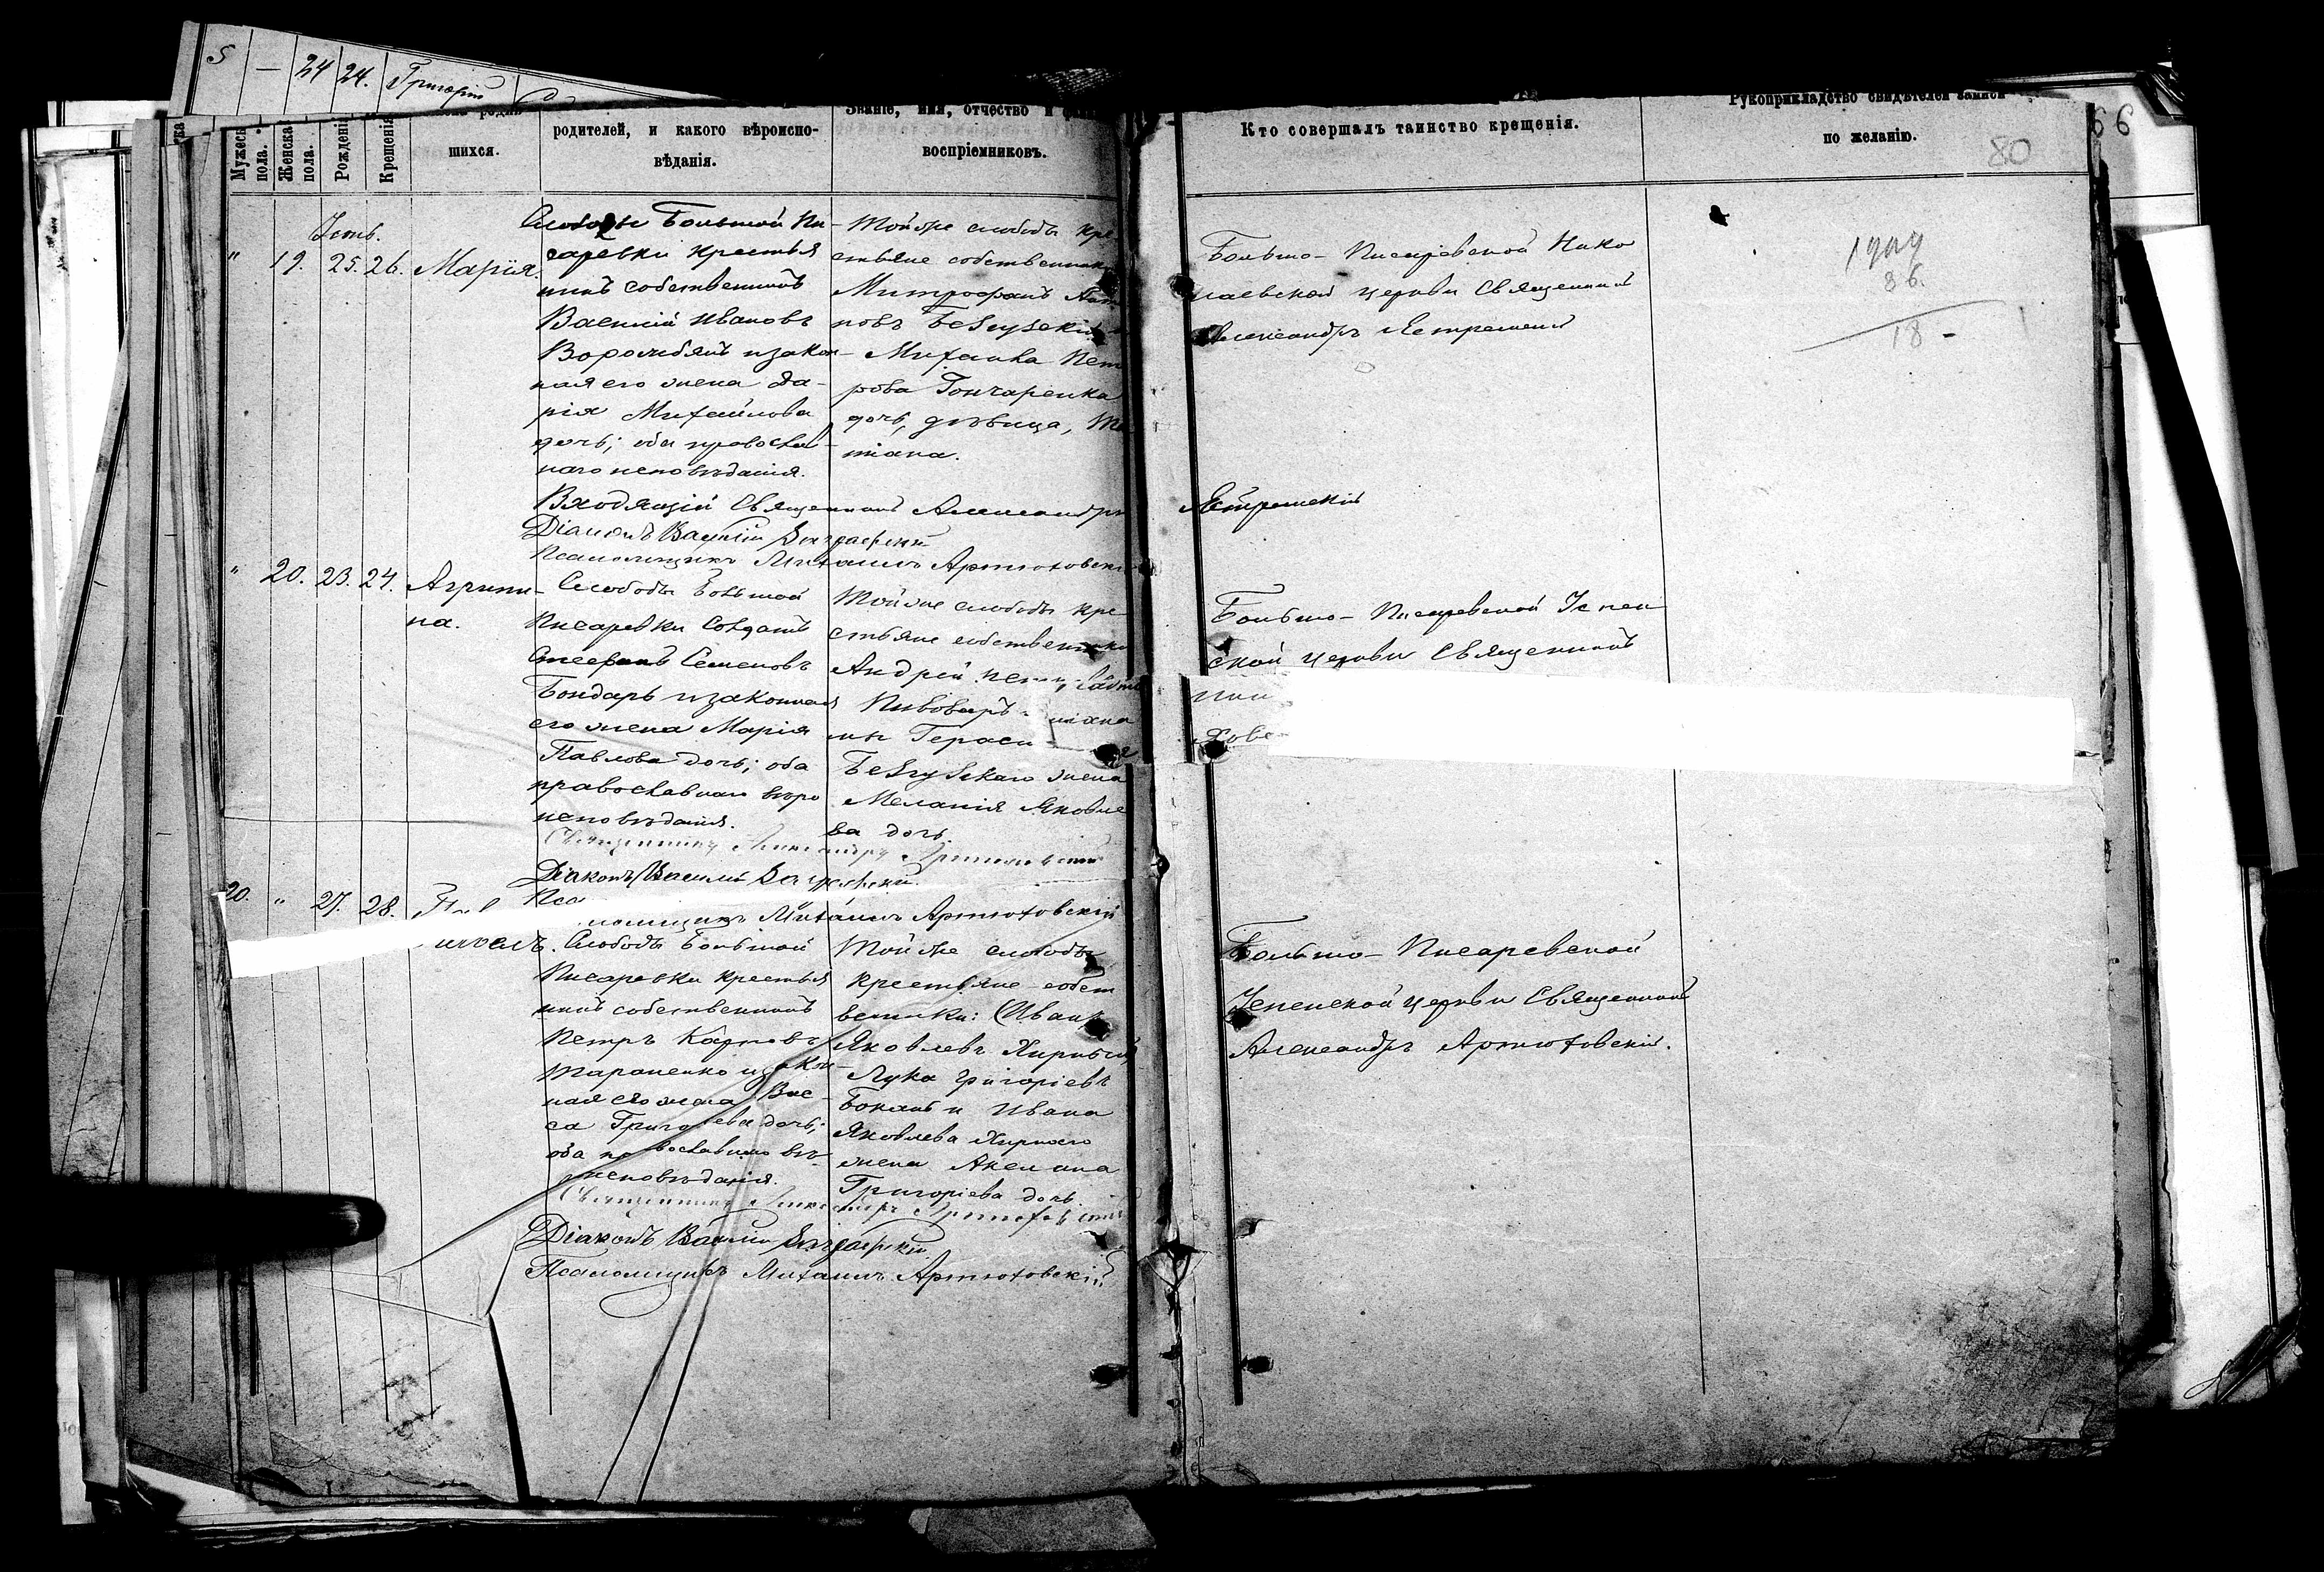 5 — 24 24. Григорій
Мужеска пола.
Женска пола.
Рожденія
Крещенія
шихся.
родителей, и какого вѣроиспо-
вѣданія.
Званіе, имя, отчество и
воспріемниковъ.
Кто совершалъ таинство крещенія.
Рукоприкладство свидѣтелей записи
по желанію.
80
66
" 19. 25. 26. Марія.
Слободы Большой Пи-
саревки крестья
нинъ собственникъ
Василій Ивановъ
Ворожбянъ и закон-
ная его жена Да-
рія Михайлова
дочь; оба православ-
наго исповѣданія.
Той же слободы кре-
стьяне собственники
Митрофанъ
новъ
Михаила Пет
рова Гончаренка
дочь, дѣвица, Та
тіана.
Больше-Писаревской Нико
лаевской церкви Священникъ
Александръ Ястремскій
1904
86.
18 -
Входящій Священникъ Александръ Ястремскій
Діаконъ Василій
Псаломщикъ Михаилъ Артюховскій
" 20. 23. 24. Агрипи-
на.
Слободы Большой
Писаревки Солдатъ
Стефанъ Семеновъ
Бондарь и законная
его жена Марія
Павлова дочь; оба
православнаго вѣро
исповѣданія.
Той же слободы кре-
стьяне собственники
Андрей
Пивоваръ
Гераси
жена
Меланія Яковле
ва дочь.
Больше-Писаревской Успен
ской церкви Священникъ
Священникъ Александръ Артюховскій
Діаконъ Василій
Пса
ломщикъ Михаилъ Артюховскій
20. " 27. 28.
Слободы Большой
Писаревки крестья
нинъ собственникъ
Петръ Карповъ
Тараненко и закон-
ная его жена Вас-
са Григорьева дочь;
оба православнаго вѣ-
исповѣданія.
Той же слободы
крестьяне собст
венники: Иванъ
Яковлевъ Хирный,
Лука Григоріевъ
и Ивана
Яковлева Хирнаго
жена Акелина
Григоріева дочь.
Больше-Писаревской
Успенской церкви Священникъ
Александръ Артюховскій.
Священникъ Александръ Артюховскій
Діаконъ Василій
Псаломщикъ Михаилъ Артюховскій